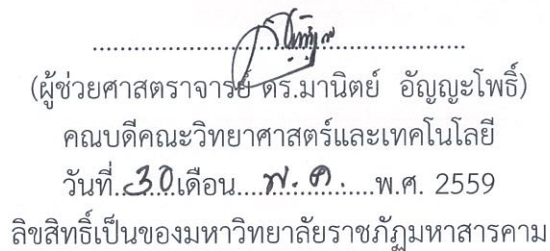 (ผู้ช่วยศาสตราจารย์ ดร.มานิตย์ อัญญะโพธิ์)
คณบดีคณะวิทยาศาสตร์และเทคโนโลยี
วันที่ 30 เดือน พ.ค. พ.ศ. 2559
ลิขสิทธิ์เป็นของมหาวิทยาลัยราชภัฏมหาสารคาม